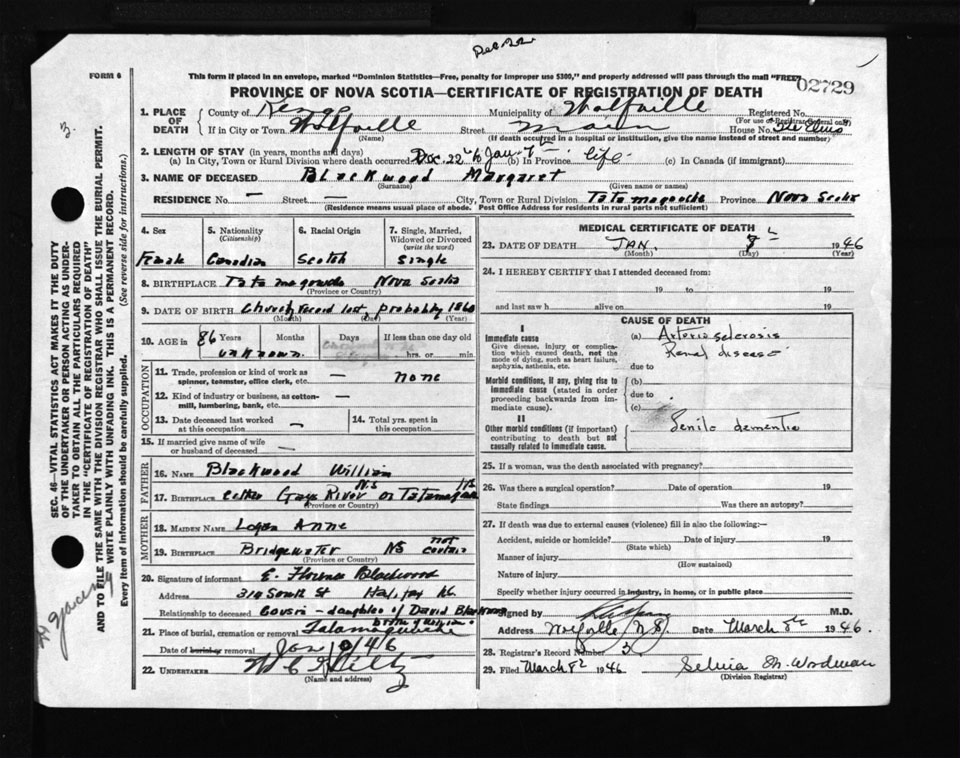 Dec. 22
FORM 6
This form if placed in an envelope, marked "Dominion Statistics—Free, penalty for improper use $300," and properly addressed will pass through the mail "FREE"
02729
PROVINCE OF NOVA SCOTIA—CERTIFICATE OF REGISTRATION OF DEATH
1. PLACE OF DEATH County of Kings Municipality of Wolfville Registered No.
(For use of Registrar General only)
If in City or Town Wolfville Street Main House No. The Elms
(Name) (If death occurred in a hospital or institution, give its name instead of street and number)
2. LENGTH OF STAY (in years, months and days)
(a) In City, Town or Rural Division where death occurred Dec. 22 to Jan. 8th (b) In Province life (c) In Canada (if immigrant)
3. NAME OF DECEASED Blackwood Margaret
(Surname) (Given name or names)
RESIDENCE No. — Street — City, Town or Rural Division Tatamagouche Province Nova Scotia
(Residence means usual place of abode. Post Office Address for residents in rural parts not sufficient)
4. Sex 5. Nationality (Citizenship) 6. Racial Origin 7. Single, Married, Widowed or Divorced (write the word)
Female Canadian Scotch Single
8. BIRTHPLACE Tatamagouche Nova Scotia
(Province or Country)
9. DATE OF BIRTH Church record lost, probably 1860
(Month) (Day) (Year)
10. AGE in 86 Years Months Days If less than one day old
unknown hrs. or min.
OCCUPATION
11. Trade, profession or kind of work as spinner, teamster, office clerk, etc. — none
12. Kind of industry or business, as cotton-mill, lumbering, bank, etc. —
13. Date deceased last worked at this occupation — 14. Total yrs. spent in this occupation
15. If married give name of wife or husband of deceased —
FATHER
16. NAME Blackwood William
17. BIRTHPLACE either Gays River NS or Tatamagouche NS
(Province or Country)
MOTHER
18. MAIDEN NAME Logan Anne
19. BIRTHPLACE Bridgewater NS not certain
(Province or Country)
20. Signature of informant E. Florence Blackwood
Address 319 South St Halifax NS
Relationship to deceased Cousin - daughter of David Blackwood
brother of William
21. Place of burial, cremation or removal Tatamagouche
Date of burial or removal Jan 10 / 46
22. UNDERTAKER
(Name and address)
MEDICAL CERTIFICATE OF DEATH
23. DATE OF DEATH JAN. 8th 1946
(Month) (Day) (Year)
24. I HEREBY CERTIFY that I attended deceased from:
19 to 19
and last saw h alive on 19
CAUSE OF DEATH
I
Immediate cause (a) Arterio sclerosis
Give disease, injury or complication which caused death, not the mode of dying, such as heart failure, asphyxia, asthenia, etc.
Renal disease
due to
Morbid conditions, if any, giving rise to immediate cause (stated in order proceeding backwards from immediate cause).
(b)
due to
(c)
II
Other morbid conditions (if important) contributing to death but not causally related to immediate cause.
Senile dementia
25. If a woman, was the death associated with pregnancy?
26. Was there a surgical operation? Date of operation 19
State findings Was there an autopsy?
27. If death was due to external causes (violence) fill in also the following:—
Accident, suicide or homicide? Date of injury 19
(State which)
Manner of injury
(How sustained)
Nature of injury
Specify whether injury occurred in industry, in home, or in public place
Signed by M.D.
Address Wolfville, N.S. Date March 8th 1946.
28. Registrar's Record Number 3
29. Filed March 8th 1946 Selina M. Woodman
(Division Registrar)
SEC. 46—VITAL STATISTICS ACT MAKES IT THE DUTY OF THE UNDERTAKER OR PERSON ACTING AS UNDERTAKER TO OBTAIN ALL THE PARTICULARS REQUIRED IN THE "CERTIFICATE OF REGISTRATION OF DEATH" AND TO FILE THE SAME WITH THE DIVISION REGISTRAR WHO SHALL ISSUE THE BURIAL PERMIT.
WRITE PLAINLY WITH UNFADING INK. THIS IS A PERMANENT RECORD.
Every item of information should be carefully supplied. (See reverse side for instructions.)